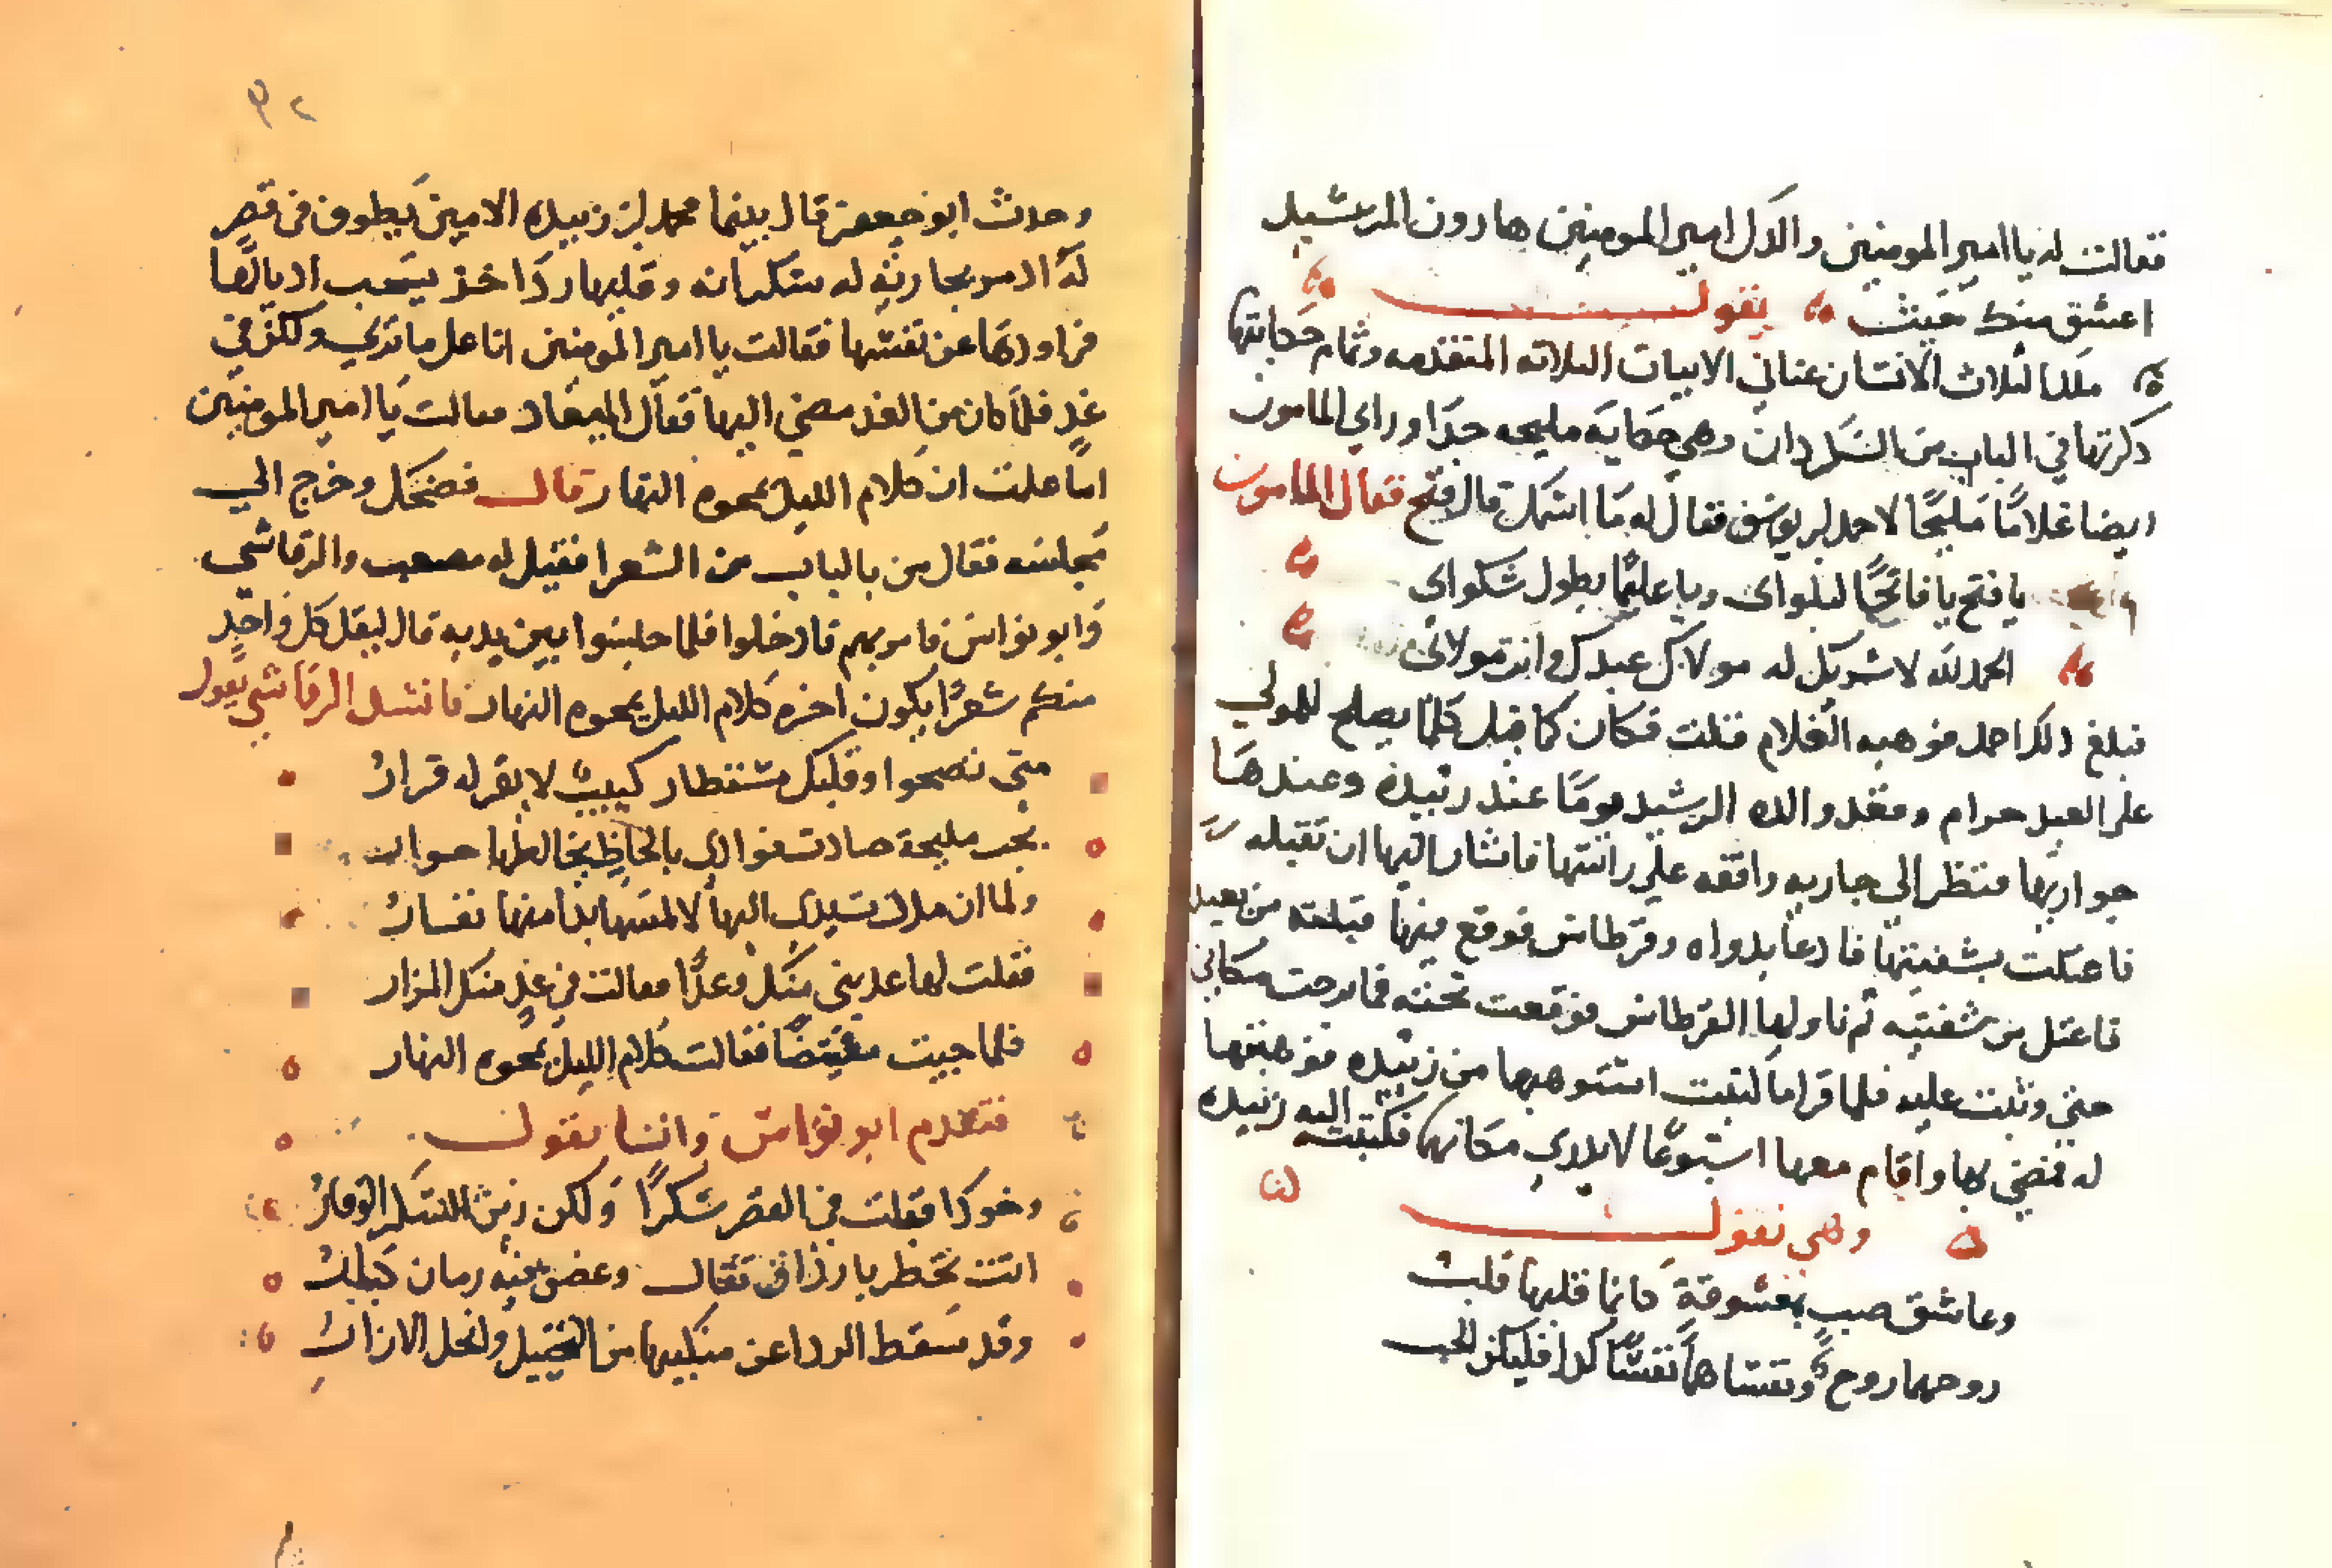 فقالت له يا امير المومنين والدك امير المومنين هارون الرشيد
اعشق منك حيث يقول
ملك الثلاث الانسات عناني الابيات الثلاثه المتقدمه وتمام حكايتها
ذكرتها في الباب من السكردان وهي حكايه مليحه جدا وراي المامون
ايضا غلامًا مليحًا لاحمد بن يوسف فقال له ما اسمك قال فتح فقال المامون
يا فتح يا فاتحًا لبلواي ويا عليمًا بطول شكواي
الحمد لله لا شريك له مولاك عبدك وانت مولاي
فبلغ ذلك احمد فوهبه الغلام قلت فكان كما قيل كلما يصلح للمولي
علي العبد حرام وقعد والده الرشيد يومًا عند زبيدة وعندها
جواريها فنظر الي جاريه واقفه علي راسها فاشار اليها ان تقبله
فاعتلت بشفتيها فادعا بدواه وقرطاس فوقع فيها قبلته من بعيد
فاعتل من شفتيه ثم ناولها القرطاس فوقعت تحته فما برحت مكاني
حتي وثبت عليه فلما قرا ما كتبت استوهبها من زبيده فوهبتها
له فمضي بها واقام معها اسبوعًا لا يدري مكانهما فكتبت اليه زبيده
وهي تقول
وعاشق صب بمعشوقة كانما قلبهما قلب
روحهما روح ونفساهما نفسًا كذا فليكن الحب
٩٢
وحدث ابو جعفر قال بينما محمد بن زبيده الامين يطوف في قصر
له اذ مر بجاريه له سكرانه وعليها ردا خز يسحب اديالها
فراودها عن نفسها فقالت يا امير المومنين انا علي ما تري ولكن في
غد فلما كان من الغد مضي اليها فقال الميعاد فقالت يا امير المومنين
اما علمت ان كلام الليل يمحوه النهار قال فضحك وخرج الي
مجلسه فقال من بالباب من الشعرا فقيل له مصعب والرقاشي
وابو نواس فامر بهم فادخلوا فلما جلسوا بين يديه قال ليقل كل واحد
منكم شعرًا يكون اخره كلام الليل يمحوه النهار فانشد الرقاشي يقول
متي تصحوا وقلبك مستطار كييب لا يقر له قرار
بحب مليحة صادت فوادي بالحاظ يخالطها احورار
ولما ان مددت يدي اليها لالمسها بدا منها نفار
فقلت لها عديني منك وعدًا فقالت في غد منك المزار
فلما جيت مقتضًا فقالت كلام الليل يمحوه النهار
فتقدم ابو نواس وانشا يقول
وخود اقبلت في القصر سكرًا ولكن زين السكر الوقار
اتت تخطر بارداف ثقال وغصن فيه رمان كبار
وقد سقط الردا عن منكبيها من التخييل وانحل الازار